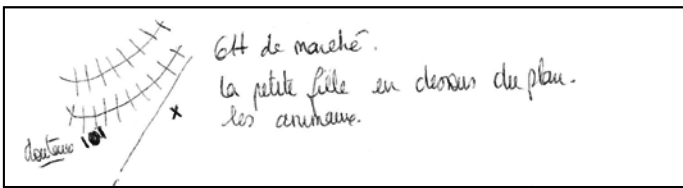 6H de marché.
la petite fille en dessus du plan.
les animaux.
douteux 101